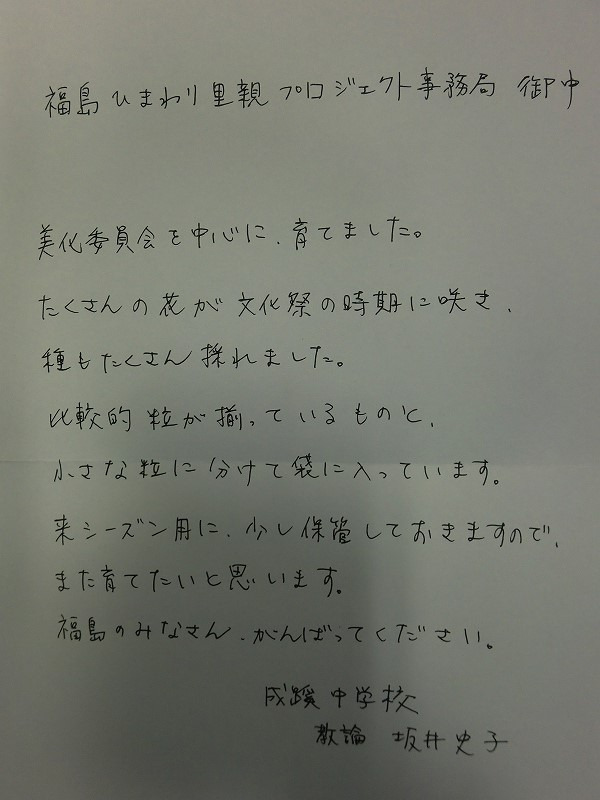 福島ひまわり里親プロジェクト事務局 御中
美化委員会を中心に、育てました。
たくさんの花が文化祭の時期に咲き、
種もたくさん採れました。
比較的粒が揃っているものと、
小さな粒に分けて袋に入っています。
来シーズン用に、少し保管しておきますので、
また育てたいと思います。
福島のみなさん、がんばってください。
成蹊中学校
教諭 坂井史子